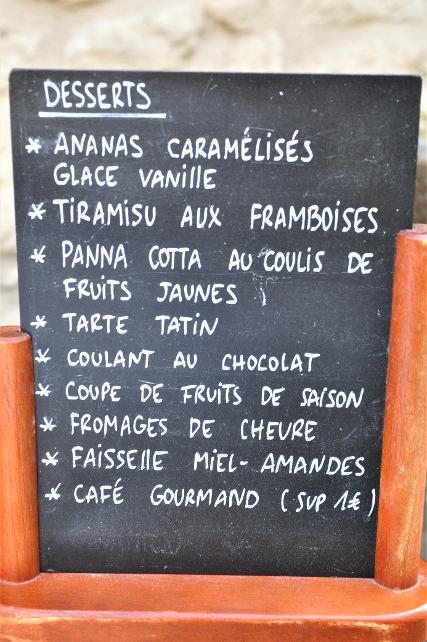 DESSERTS
* ANANAS CARAMÉLISÉS
GLACE VANILLE
* TIRAMISU AUX FRAMBOISES
* PANNA COTTA AU COULIS DE
FRUITS JAUNES
* TARTE TATIN
* COULANT AU CHOCOLAT
* COUPE DE FRUITS DE SAISON
* FROMAGES DE CHEVRE
* FAISSELLE MIEL-AMANDES
* CAFÉ GOURMAND (SUP 1€)